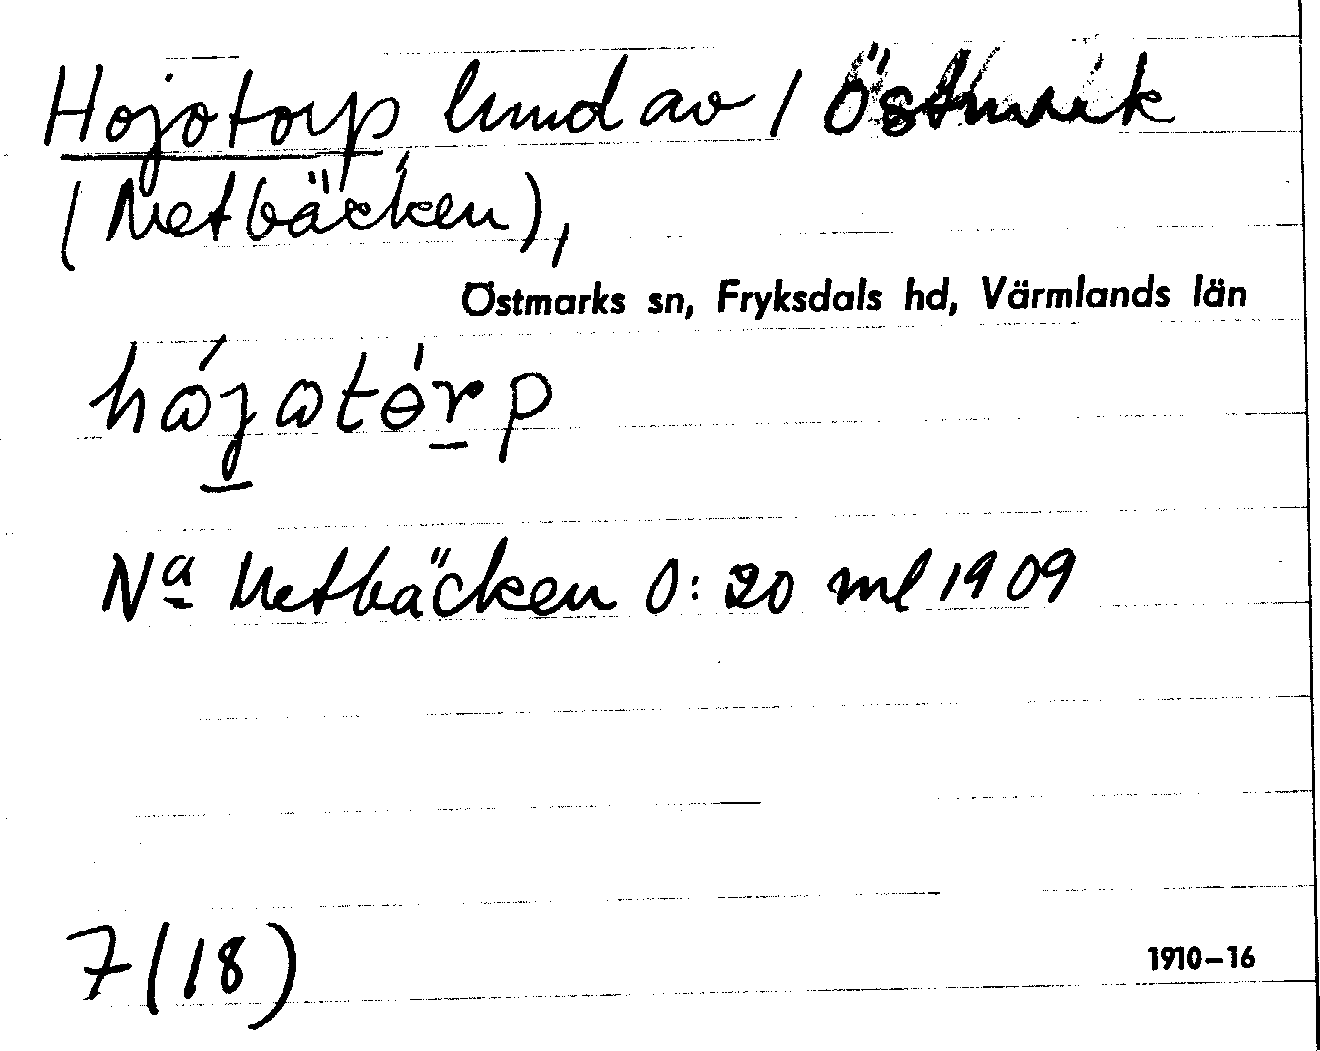 Hojotorp, lund av / Östmark
(Metbäcken),
Östmarks sn, Fryksdals hd, Värmlands län
hójatórp
Nª Metbäcken 0:20 ml 1909
7(18)
1910–16